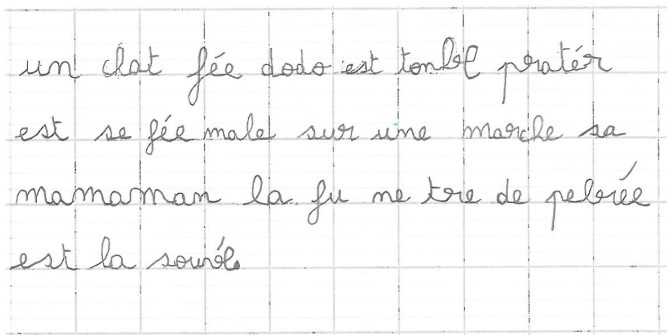 un chat fée dodo est tonbé pratér
est se fée male sur une marche sa
mamaman la fu me tre de pebrée
est la souvé